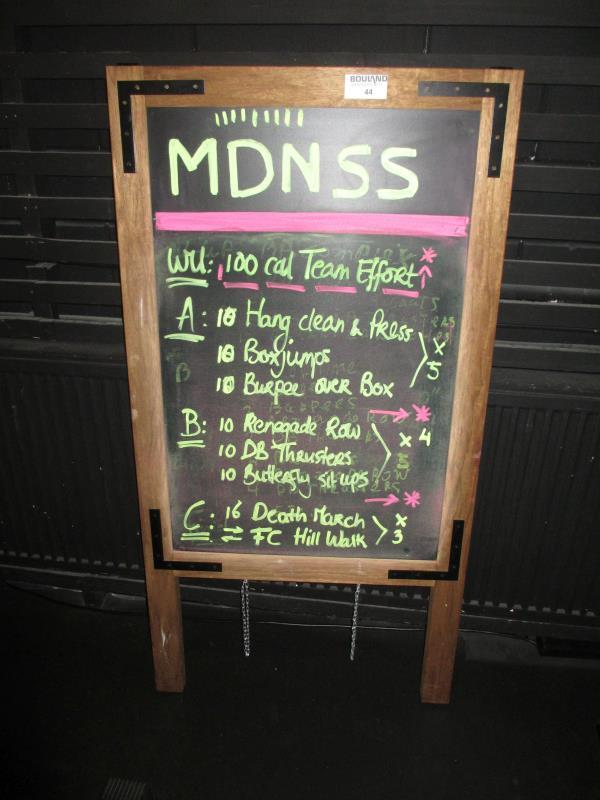 BOULAND
44
MDNSS
WU: 100 cal Team Effort *
A: 10 Hang clean & Press
10 Boxjumps x 5
10 Burpee over Box
B: 10 Renegade Row x 4
10 DB Thrusters
10 Butterfly sit ups
C: 16 Death March x 3
⇄ FC Hill Walk